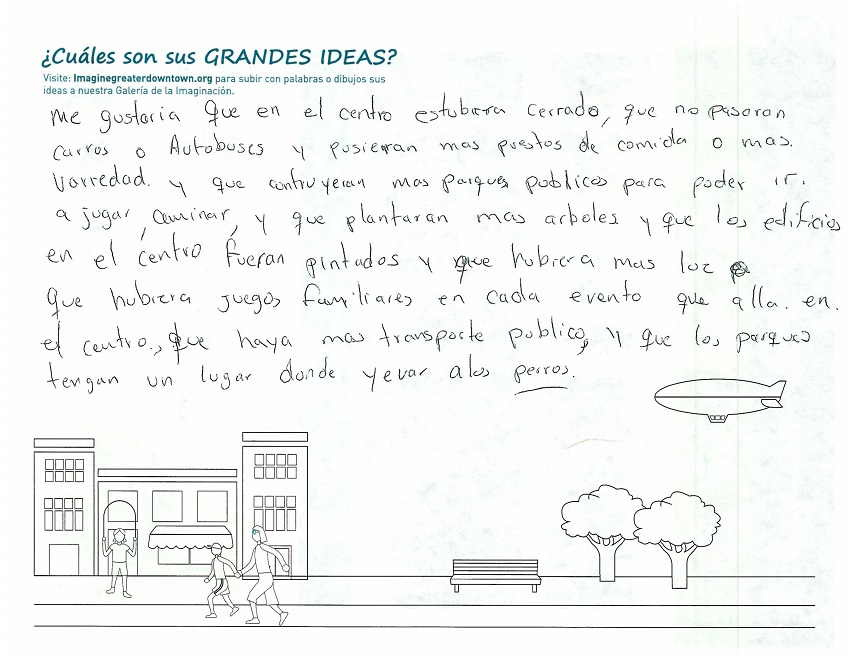 ¿Cuáles son sus GRANDES IDEAS?
Visite: Imaginegreaterdowntown.org para subir con palabras o dibujos sus
ideas a nuestra Galería de la Imaginación.
me gustaria que en el centro estubiera cerrado, que no pasaran
carros o Autobuses y pusieran mas puestos de comida o mas.
varredad. y que contruyeran mas parques publicos para poder ir.
a jugar, caminar, y que plantaran mas arboles y que los edificios
en el centro fueran pintados y que hubiera mas luz
que hubiera juegos familiares en cada evento que alla. en.
el centro., que haya mas transporte publico, y que los parques
tengan un lugar donde yevar alos perros.